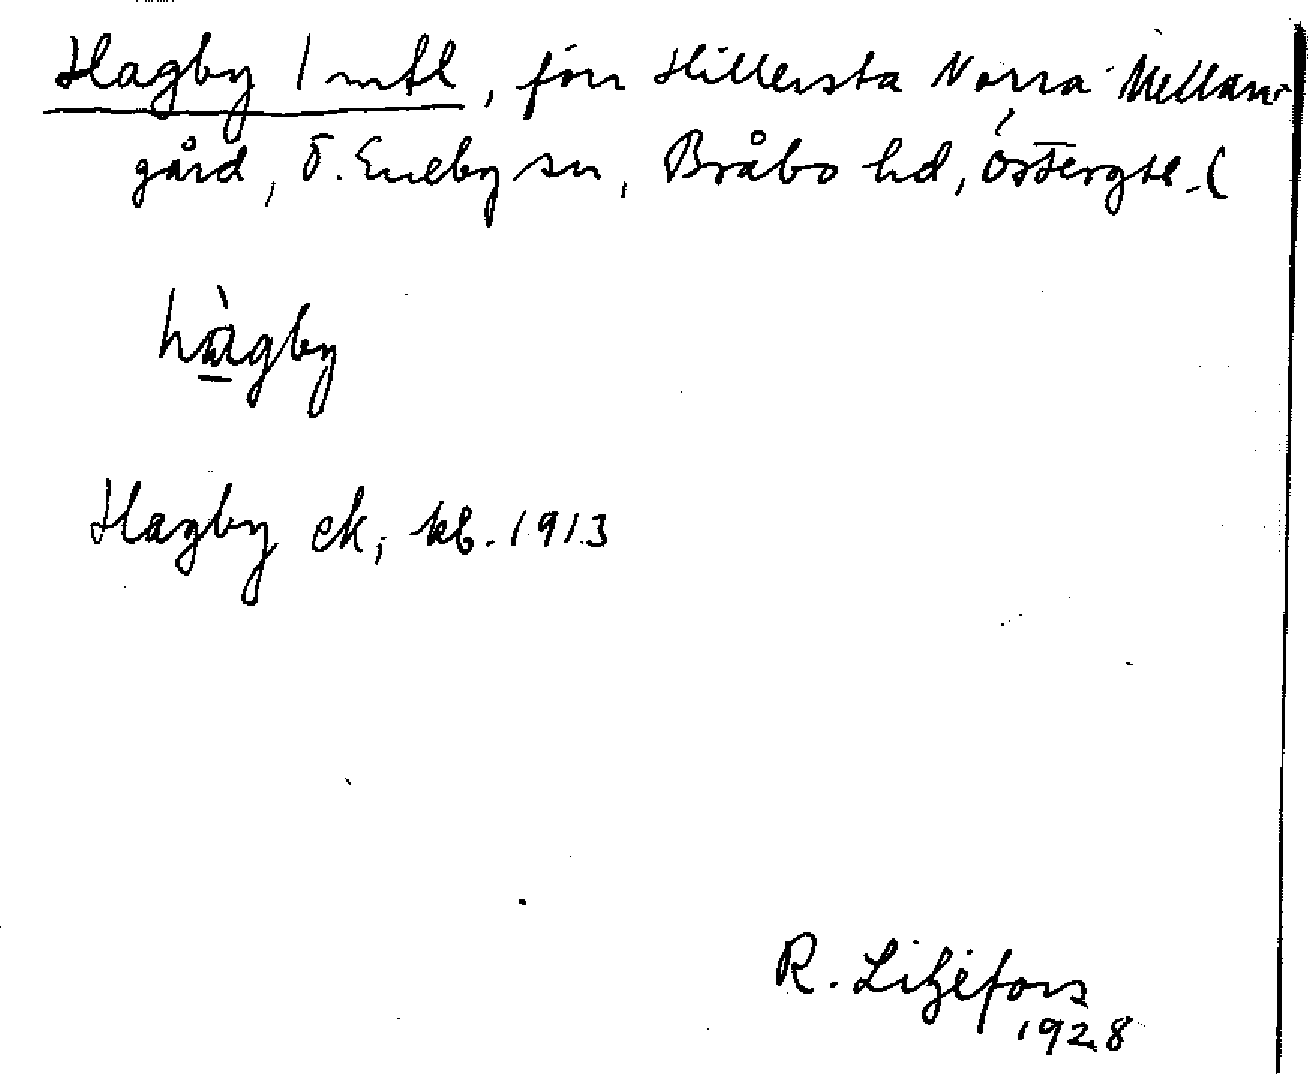 Hagby 1 mtl, förr Hillersta Norra Mellan-
gård, Ö. Eneby sn, Bråbo hd, Östergtl. (
hàgby
Hagby ek, kb. 1913
R. Liljefors
1928